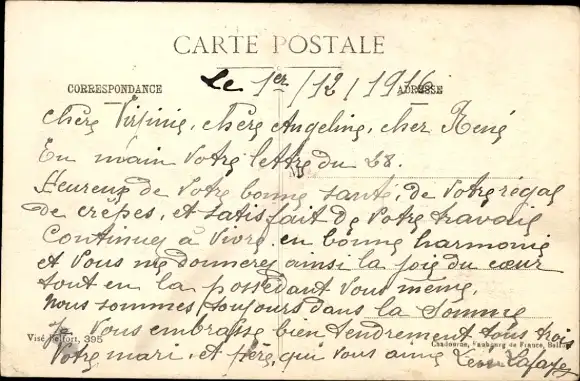 CARTE POSTALE
CORRESPONDANCE
ADRESSE
Le 1er/12/1916
Chère Virginie, chère Angeline, cher René
En main votre lettre du 28.
Heureux de votre bonne santé, de votre régal
de crêpes, et satisfait de votre travail
Continuez à vivre en bonne harmonie
et vous me donnerez ainsi la joie du cœur
tout en la possédant vous même,
Nous sommes toujours dans la Somme
Je vous embrasse bien tendrement tous trois
Votre mari, et père, qui vous aime
Visé Belfort, 395
Chadourne, Faubourg de France, Belfort